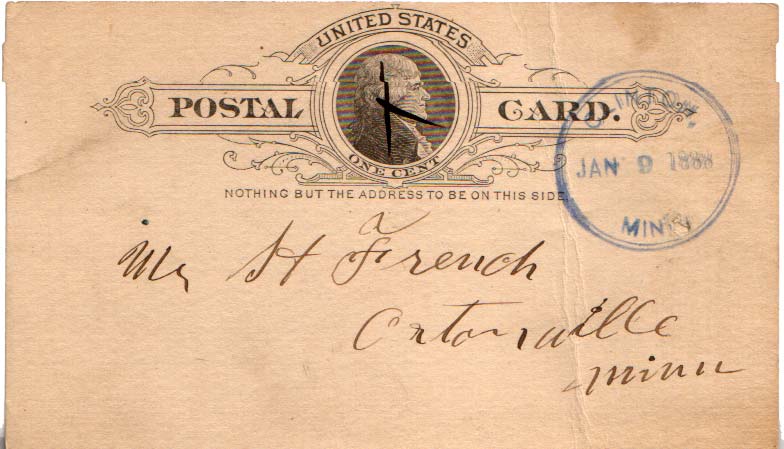 UNITED STATES
POSTAL CARD.
ONE CENT
NOTHING BUT THE ADDRESS TO BE ON THIS SIDE.
CLINTON,
JAN 9 1888
MINN
Mr H a French
Ortonville
Minn